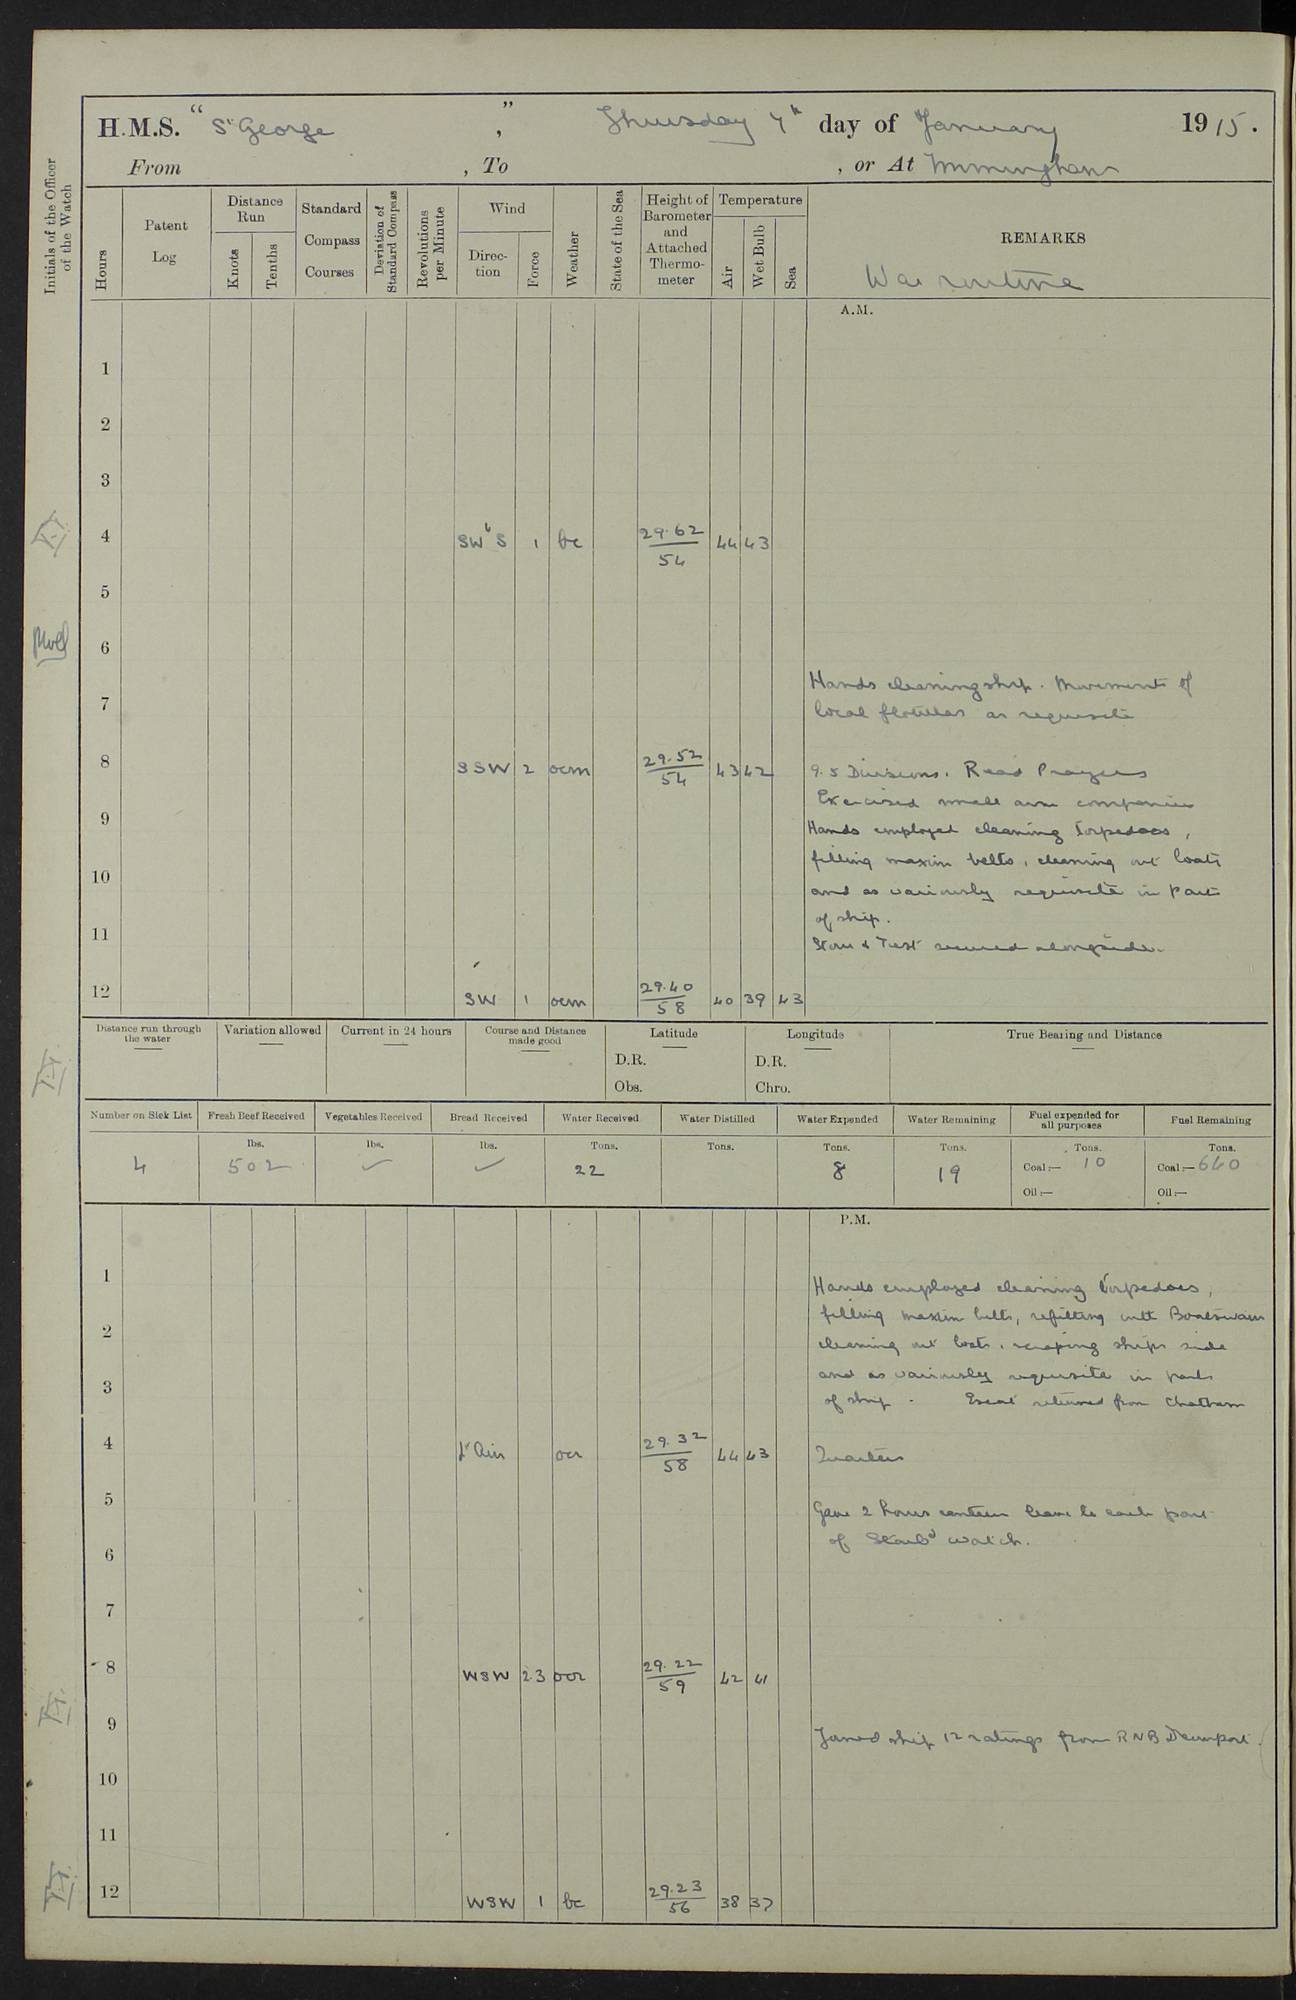 H.M.S. "St George", Thursday 7th day of January 1915.
From , To , or At Immingham
Initials of the Officer of the Watch
Hours
Patent Log
Distance Run
Knots
Tenths
Standard Compass Courses
Deviation of Standard Compass
Revolutions per Minute
Wind
Direction
Force
Weather
State of the Sea
Height of Barometer and Attached Thermometer
Temperature
Air
Wet Bulb
Sea
REMARKS
War routine
A.M.
1
2
3
4 SW b S 1 bc 29.62 54 44 43
5
6
Hands cleaning ship. Movements of
7
local flotillas as requisite
8 SSW 2 ocm 29.52 54 43 42 9.5 Divisions. Read Prayers
Exercised small arm companies
9 Hands employed cleaning torpedoes,
filling maxim belts, cleaning out boats
10 and as variously requisite in part
of ship.
11
secured alongside.
12 SW 1 ocm 29.40 58 40 39 43
Distance run through the water
Variation allowed
Current in 24 hours
Course and Distance made good
Latitude
D.R.
Obs.
Longitude
D.R.
Chro.
True Bearing and Distance
Number on Sick List
Fresh Beef Received
Vegetables Received
Bread Received
Water Received
Water Distilled
Water Expended
Water Remaining
Fuel expended for all purposes
Fuel Remaining
lbs. lbs. lbs. Tons. Tons. Tons. Tons. Tons. Tons.
4 502 ✓ ✓ 22 8 19 Coal:— 10 Coal:— 640
Oil:— Oil:—
P.M.
1 Hands employed cleaning torpedoes,
filling maxim belts, refitting with Boatswain
2 cleaning out boats, scraping ships side
3 and as variously requisite in parts
of ship. returned from Chatham
4 Lt Air ocr 29.32 58 44 43 Quarters
5 Gave 2 hours canteen leave to each part
of Starbd watch.
6
7
8 WSW 2.3 ocr 29.22 59 42 41
9 Joined ship 12 ratings from RNB Devonport.
10
11
12 WSW 1 bc 29.23 56 38 37